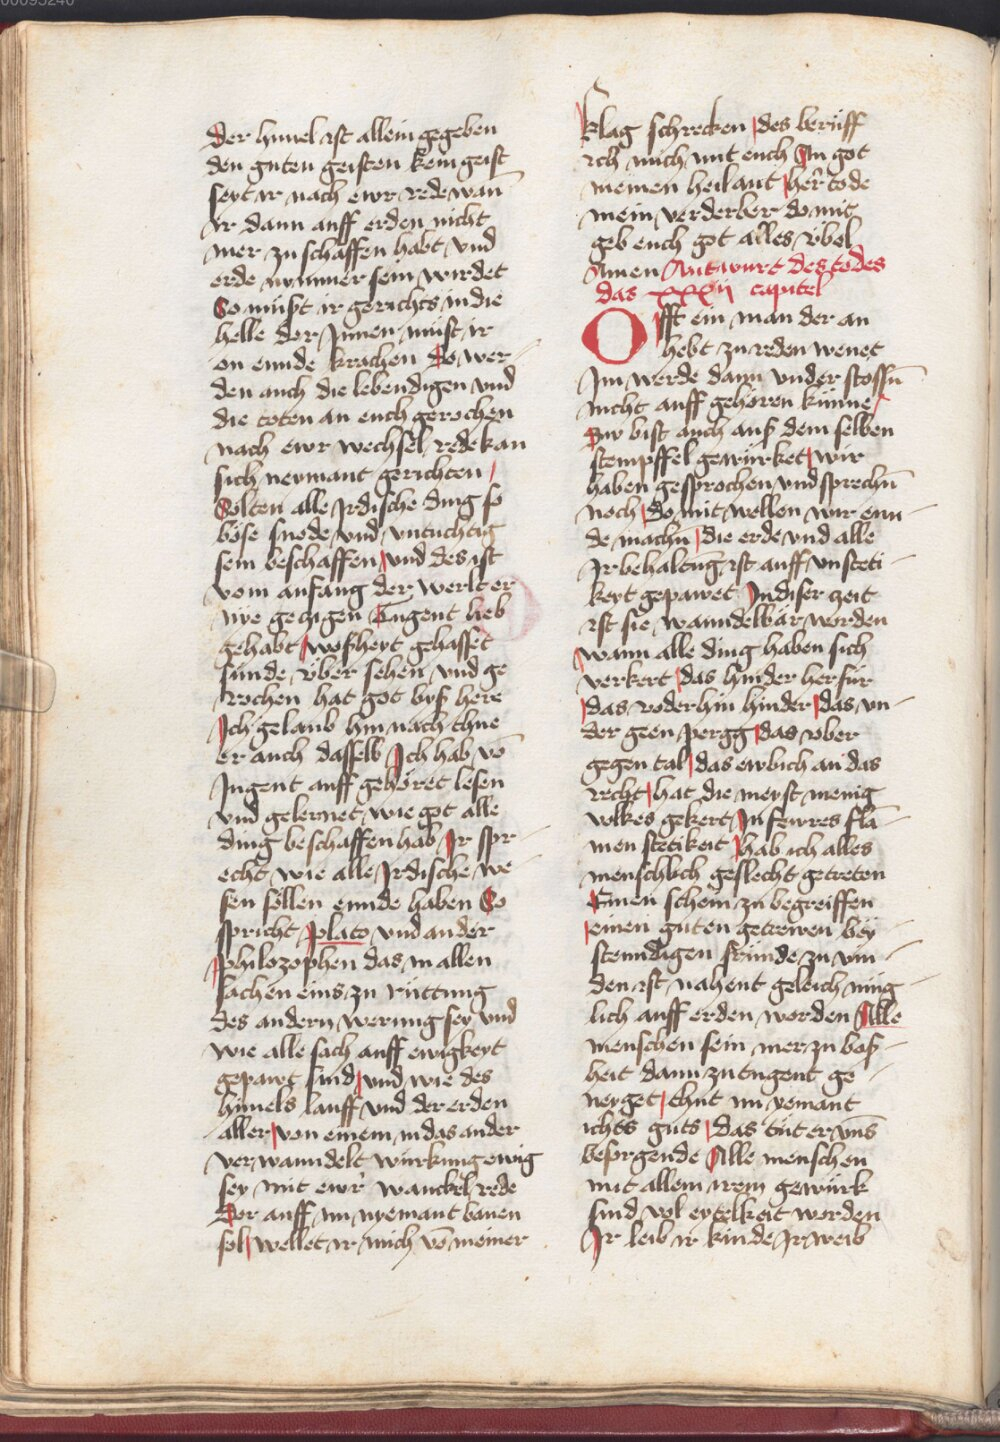 Der himel ist allein gegeben
den guten geisten kein geist
seyt ir nach ewr rede wañ
ir dann auff erden nicht
mer zu schaffen habt vnd
erde nymmer sein wirdet
So müßt ir gerichts in die
helle dor Innen müst ir
on ennde krachen Do wer-
den auch die lebendigen vnd
die toten an euch gerochen
nach ewr wechsel rede kan
sich neymant gerichten
Solten alle Irdische ding so
böse snode vnd vntuchtig
sein beschaffen vnd des ist
vom anfang der werlt er
nye gezigen Tugent lieb
gehabt boßheyt gehasset
sünde über sehen vnd ge
rochen hat got byß here
Ich gelaub hin nach thue
er auch dasselb Ich hab võ
Jugent auff gehöret lesen
vnd gelernet wie got alle
ding beschaffen hab Ir spr-
echt wie alle Irdische we-
sen söllen ennde haben So
spricht plato vnd ander
philozophen das in allen
sachen eins zu rüttung
des andern werung sey vnd
wie alle sach auff ewigkeyt
gepawt sind vnd wie des
himels lauff vnd der erden
aller von einem in das ander
verwanndelt würkung ewig
sey mit ewr wanckel rede
Dor auff im nyemant bauen
sol wellet ir mich võ meiner
klag schrecken des berüff
ich mich mit euch An got
meinen heilant her tode
mein verderber do mit
geb euch got alles übel
Amen Antwurt des todes
das xxxij capitel
Offt ein man der an
hebt zu reden wenet
Im werde dann vnder stossñ
nicht auff gehören künne
Dw bist auch auß dem selben
stempffel gewürket wir
haben gesprochen vnd sprechñ
noch do mit wellen wir enn-
de machñ die erde vnd alle
Ir behaltũg ist auff vnsteti-
keyt gepawet In diser zeit
ist sie wanndelbar worden
wann alle ding haben sich
verkert das hinder herfür
das voderhin hinder das vn-
der geen pergg das vber
gegen tal das ewbich an das
recht hat die meyst menig
volkes gekert In fewres flã-
men stetikeit hab ich alles
menschlich geslecht getreten
Einen schein zu begreiffen
einen guten getrewen bey-
stenndigen fründe zu vin-
den ist nahent geleich müg-
lich auff erden worden Alle
menschen sein mer zu boß-
heit dann zu tugent ge-
neyget thut im yemant
ichts guts das tüt er vns
besorgende Alle menschen
mit allem irem gewürk
sind vol eytelkeit worden
Ir leib ir kinde Ir weib